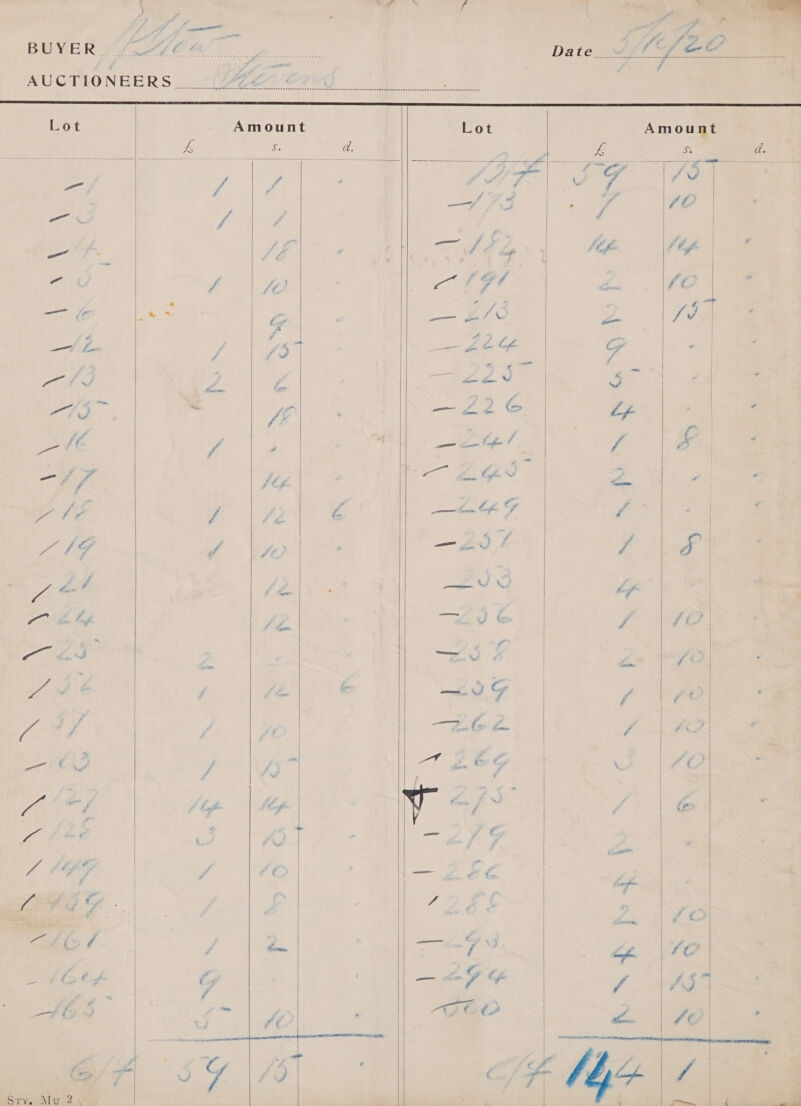 BUYER Stow
Date 5/10/20
AUCTIONEERS Stevens
Lot Amount
£ s. d.
1 1 1 -
3 1 1
4 18 -
5 1 10 -
6 9 -
12 1 15 -
13 2 6 -
15 18 -
16 1 - -
17 14 -
18 1 12 6
19 1 10 -
21 12 -
24 12
25 2 - -
56 1 12 6
57 1 10
103 1 15
127 14 14 -
128 3 15 -
149 1 10 -
159 1 8
161 1 2 -
164 9 - -
165 5 10 -
C/f 59 15 -
Lot Amount
£ s. d.
B/f 59 15
173 7 10 -
182 14 14 -
191 2 10 -
213 2 15 -
224 9 - -
225 5 - -
226 4 - -
241 1 8 -
245 2 - -
249 1 - -
251 1 8
253 4
256 1 10 -
258 2 10 -
259 1 10 -
262 1 10 -
269 3 10 -
275 1 6 -
279 2 -
286 4 -
288 2 10
293 4 10 -
294 1 15 -
300 2 10 -
C/f 144 1
Srv. Mu 2